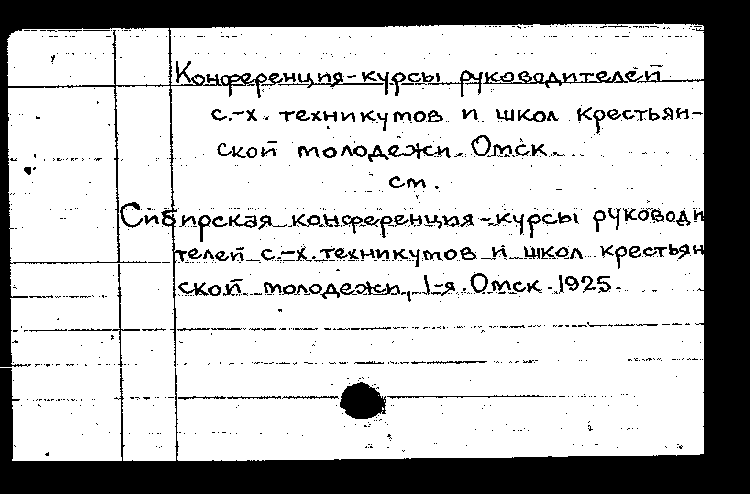 Конференция-курсы руководителей
с.-х. техникумов и школ крестьян-
ской молодежи. Омск.
см.
Сибирская конференция-курсы руководи
телей с.-х. техникумов и школ крестьян
ской молодежи, 1-я. Омск. 1925.